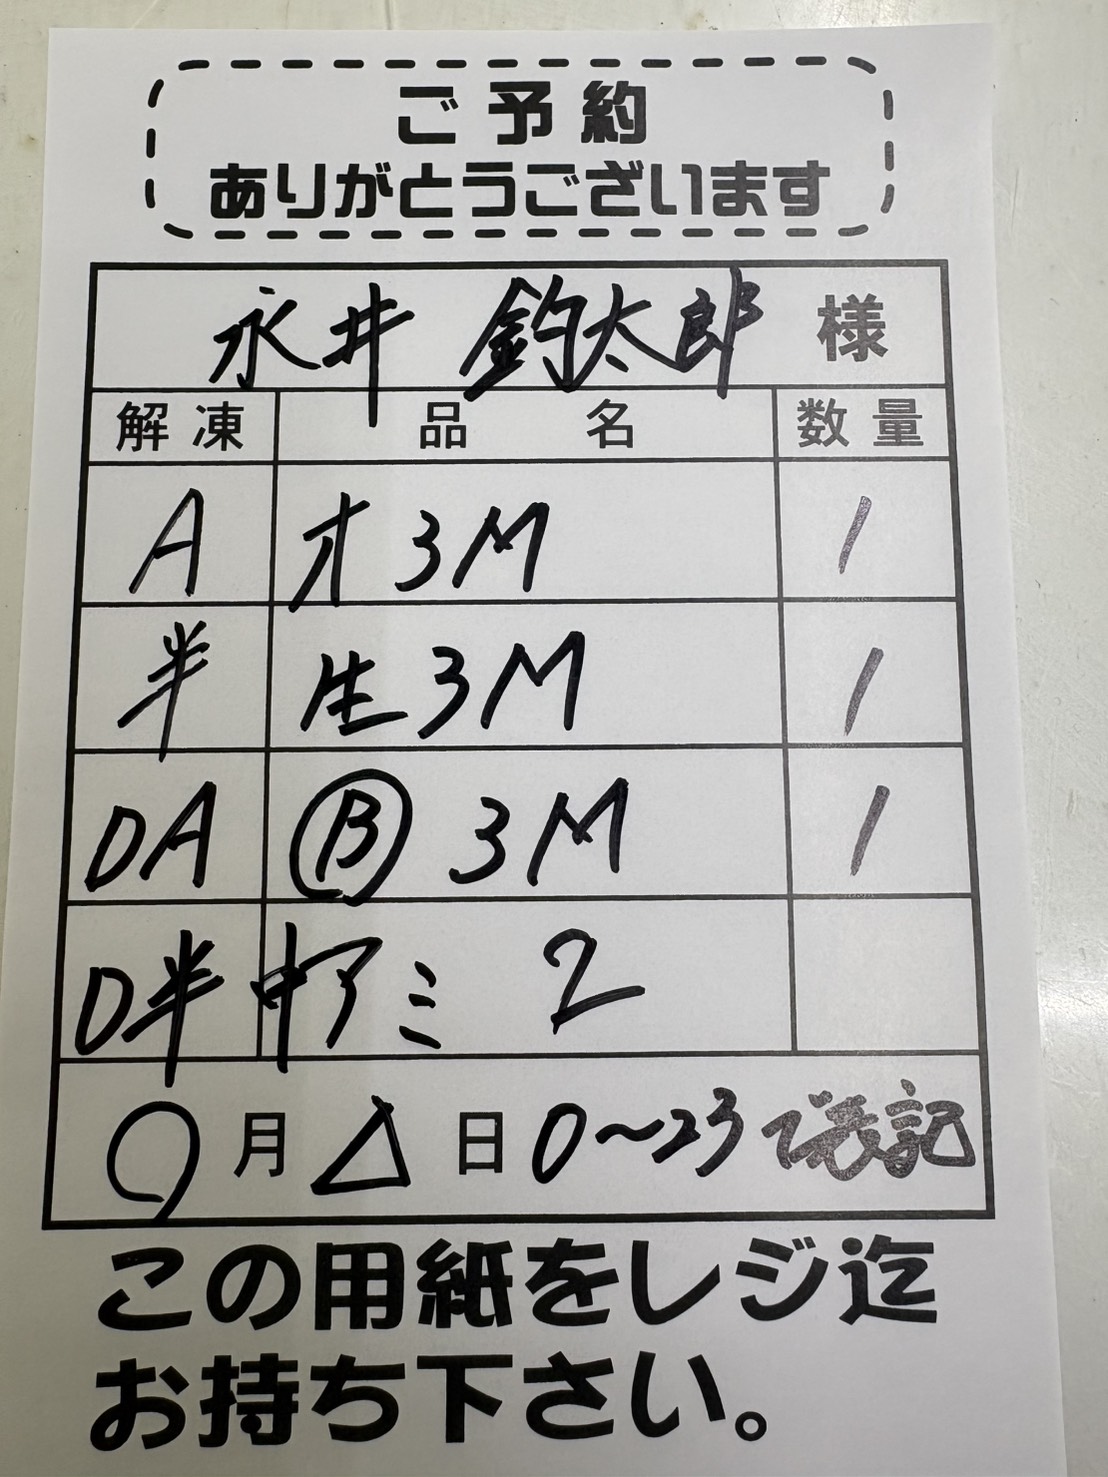 ご予約
ありがとうございます
永井 釣太郎 様
解凍 品名 数量
A オ3M 1
半 生3M 1
DA Ⓑ 3M 1
D半 中アミ 2
○月△日 0～23で表記
この用紙をレジ迄
お持ち下さい。